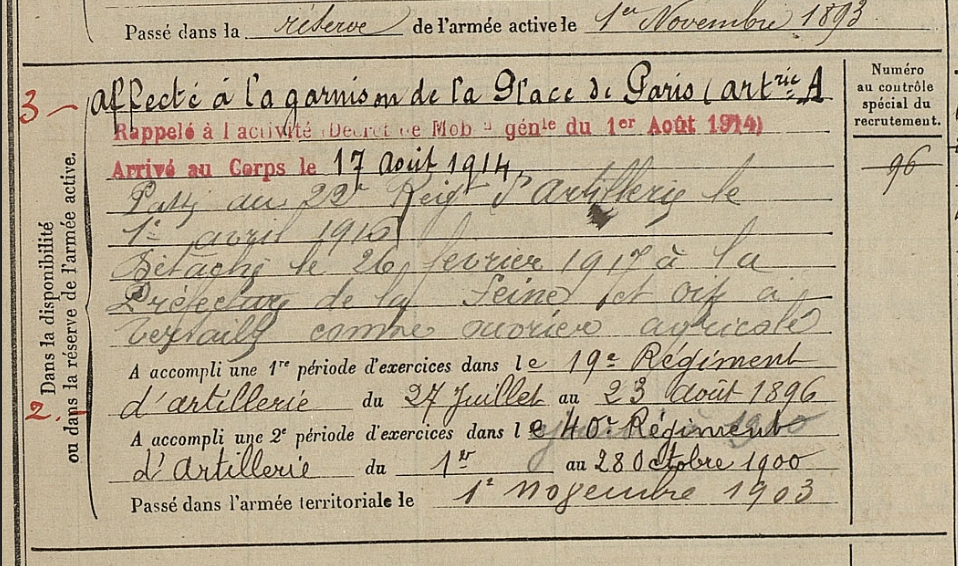 Passé dans la réserve de l'armée active le 1er Novembre 1893
Numéro
au contrôle
spécial du
recrutement.
96
Dans la disponibilité
ou dans la réserve de l'armée active.
3 – affecté à la garnison de la Place de Paris (artrie A
Rappelé à l'activité (Décret de Mob n génle du 1er Août 1914)
Arrivé au Corps le 17 Août 1914,
Passé au 22e Reigt d'artillerie le
1er avril 1916
Détaché le 26 fevrier 1917 à la
Préfecture de la Seine et oise à
Versailles comme agricole
A accompli une 1re période d'exercices dans le 19e Régiment
2. – d'artillerie du 27 Juillet au 23 Août 1896
A accompli une 2e période d'exercices dans le 40e Régiment
d'Artillerie du 1er au 28 Octobre 1900
Passé dans l'armée territoriale le 1er Novembre 1903